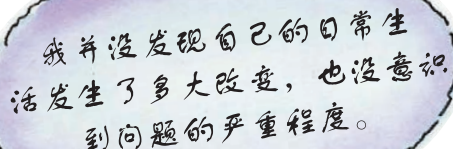 我并没发现自己的日常生
活发生了多大改变，也没意识
到问题的严重程度。